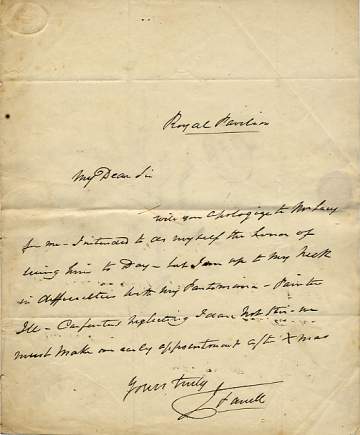 Royal Pavilion
My Dear Sir
will you apologize to
for me - I intended to do myself the honor of
seeing him to Day - but I am up to my Neck
in difficulties with my Pantomime - Painter
Ill - Carpenter neglecting - we
must make an early appointment aft Xmas
Yours truly
Farrell